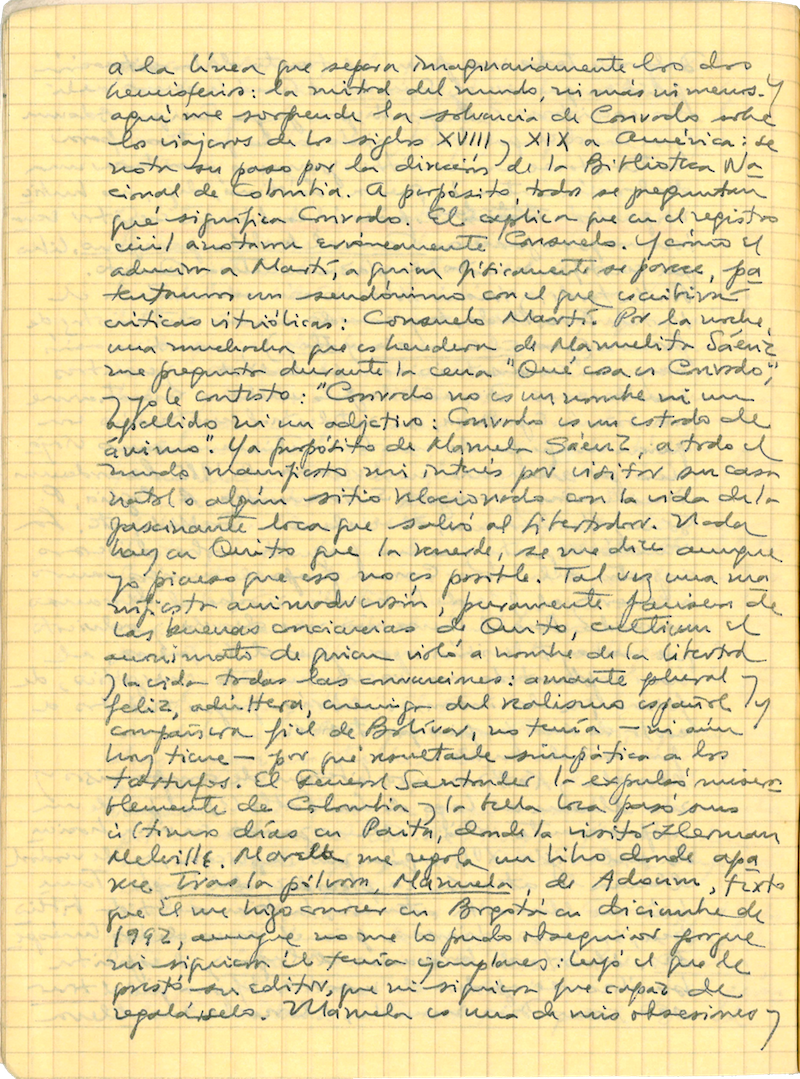 a la línea que separa imaginariamente los dos
hemisferios: la mitad del mundo, ni más ni menos. Y
aquí me sorprende la solvencia de Conrado sobre
los viajeros de los siglos XVIII y XIX a América: se
nota su paso por la dirección de la Biblioteca Na
cional de Colombia. A propósito, todos se preguntan
qué significa Conrado. El explica que en el registro
civil anotaron erróneamente Consuelo. Y como él
admira a Martí, a quien físicamente se parece, pa
tentamos un seudónimo con el que escribirá
críticas vitriólicas: Consuelo Martí. Por la noche,
una muchacha que es heredera de Manuelita Sáenz
me pregunta durante la cena "Qué cosa es Conrado",
y yo le contesto: "Conrado no es un nombre ni un
apellido ni un adjetivo: Conrado es un estado de
ánimo". Y a propósito de Manuela Sáenz, a todo el
mundo manifiesto mi interés por visitar su casa
natal o algún sitio relacionado con la vida de la
fascinante loca que salvó al Libertador. Nada
hay en Quito que la recuerde, se me dice aunque
yo pienso que eso no es posible. Tal vez una ma
nifiesta animadversión, puramente farisea de
las buenas conciencias de Quito, cultivan el
anonimato de quien violó a nombre de la libertad
y la vida todas las convenciones: amante plural y
feliz, adúltera, enemiga del realismo español y
compañera fiel de Bolívar, no tenía — ni aún
hoy tiene — por qué resultarle simpática a los
tartufos. El General Santander la expulsó misera
blemente de Colombia y la bella loca pasó sus
últimos días en Paita, donde la visitó Herman
Melville. me regala un libro donde apa
rece Tras la pólvora, Manuela, de Adoum, texto
que él me hizo conocer en Bogotá en diciembre de
1992, aunque no me lo pudo obsequiar porque
ni siquiera él tenía ejemplares: leyó el que le
prestó su editor, que ni siquiera fue capaz de
regalárselo. Manuela es una de mis obsesiones y